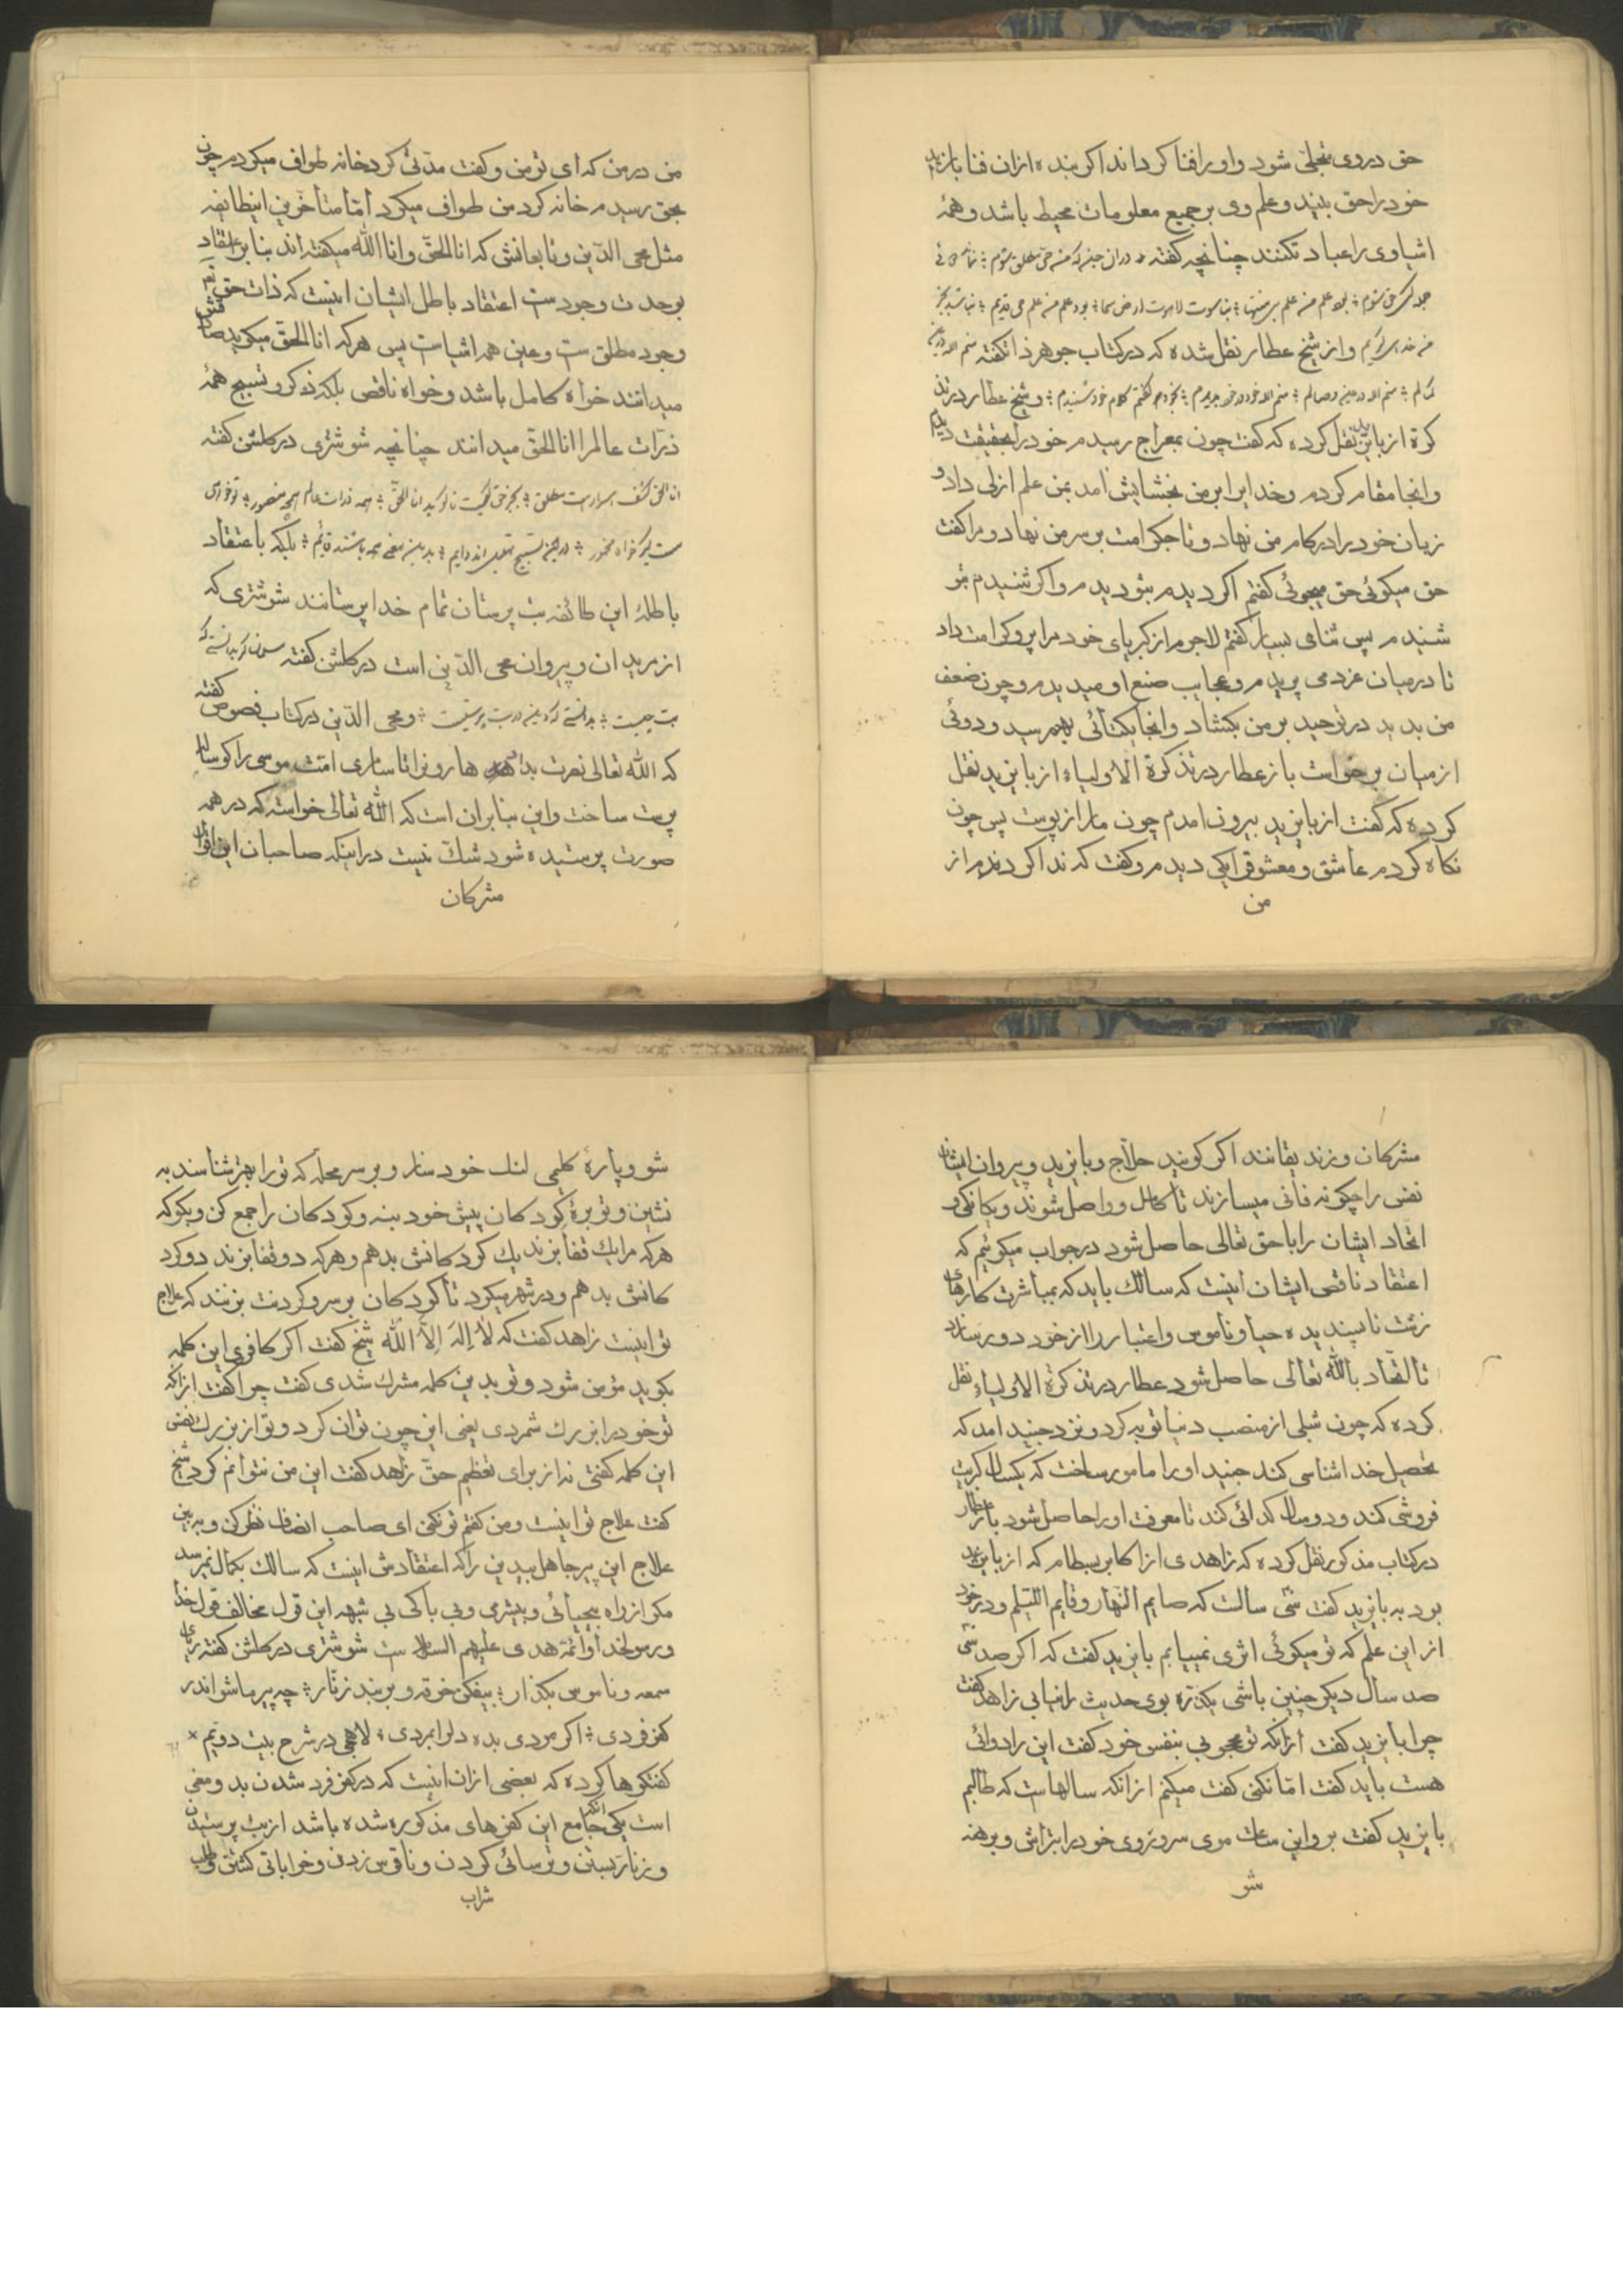 حق در وی متجلی شود و او را فنا کرداند اکر بنده از ان فنا باز اید
خود را حق بیند و علم وی بر جمیع معلومات محیط باشد و همهٔ
اشیا وی را عبادت کنند چنانچه کفته در ان
و از شیخ عطار نقل شده که در کتاب جوهر ذات کفته
منم الله در عین وصالم منم الله خود در خود بدیدم بخود هم کفتم کلام خود شنیدم و شیخ عطار در تذ
کرة از بایزید نقل کرده که کفت چون بمعراج رسیدم خود را بحقیقت دیدم
و انجا مقام کردم و خدایرا بر من بخشایش امد بمن علم ازلی داد و
زبان خود را در کام من نهاد و تاج کرامت بر سر من نهاد و مرا کفت
حق میکوئی حق میجوئی کفتم اکر دیدم بتو دیدم و اکر شنیدم بتو
شنیدم پس ثنای بسیار کفتم لاجرم از کبریای خود مرا پر و کرامت داد
تا در میان عز می پریدم و عجایب صنع او میدیدم و چون ضعف
من بدید در توحید بر من بکشاد و انجا یکتائی بهم رسید و دوئی
از میان برخواست باز عطار در تذکرة الاولیاء از بایزید نقل
کرده که کفت از بایزید بیرون امدم چون مار از پوست پس چون
نکاه کردم عاشق و معشوق را یکی دیدم و کفت که ندا کردند مرا از
من
من در من که ای تو من و کفت مدتی کرد خانه طواف میکردم چون
بحق رسیدم خانه کرد من طواف میکرد اما متأخرین اینطایفه
مثل محی الدین و تابعانش که انا الحق و انا الله میکفته اند بنا بر اعتقاد
بوحدت وجودست اعتقاد باطل ایشان اینست که ذات حق تعالی
وجود مطلق ست و عین همه اشیاست پس هر که انا الحق میکوید صادقش
میدانند خواه کامل باشد و خواه ناقص بلکه ذکر و تسبیح همهٔ
ذرات عالم را انا الحق میدانند چنانچه شوشتری در کلشن کفته
انا الحق کشف اسرارست مطلق بجز حق کیست تا کوید انا الحق همه ذرات عالم همچو منصور تو خواهی
مست کیر خواه مخمور درین تسبیح و تهلیل اند دایم بدین معنی همه باشند قایم بلکه باعتقاد
باطلهٔ این طائفه بت پرستان تمام خدا پرستانند شوشتری که
از مریدان و پیروان محی الدین است در کلشن کفته مسلمان کر بدانستی که
بت چیست بدانستی که دین در بت پرستیست و محی الدین در کتاب فصوص کفته
که الله تعالی نصرت بداد هارونرا تا سامری امت موسی را کوساله
پرست ساخت و این بنابران است که الله تعالی خواسته که در همه
صورت پرستیده شود شک نیست در اینکه صاحبان این اقوال
مشرکان
مشرکان و زندیقانند اکر کویند حلاج و بایزید و پیروان ایشان
نفس را چکونه فانی میسازند تا کامل و واصل شوند و یکانکی و
اتحاد ایشان را با حق تعالی حاصل شود در جواب میکوئیم که
اعتقاد ناقص ایشان اینست که سالک باید که بمباشرت کارهای
زشت ناپسندیده حیا و ناموس و اعتبار را از خود دور سازد
تا اتحاد بالله تعالی حاصل شود عطار در تذکرة الاولیاء نقل
کرده که چون شبلی از منصب دنیا توبه کرد و نزد جنید امد که
تحصیل خدا شناسی کند جنید او را مامور ساخت که یکسال کبریت
فروشی کند و دو سال کدائی کند تا معرفت او را حاصل شود باز عطار
در کتاب مذکور نقل کرده که زاهدی از اکابر بسطام که از بایزید
بود به بایزید کفت سی سالست که صایم النهار و قایم اللیلم و در خود
از این علم که تو میکوئی اثری نمییابم بایزید کفت که اکر صد سی
صد سال دیکر چنین باشی یکذره بوی حدیث را نیابی زاهد کفت
چرا بایزید کفت از انکه تو محجوبی بنفس خود کفت این را دوائی
هست بایزید کفت اما نکنی کفت میکنم از انکه سالهاست که طالبم
بایزید کفت برو این ساعت موی سر و روی خود را بتراش و برهنه
شو
شو و پارهٔ کلیمی لنک خود ساز و بر سر محله که تو را بهتر شناسند به
نشین و توبرهٔ کردکان پیش خود بنه و کودکان را جمع کن و بکو که
هر که مرا یک قفا بزند یک کردکانش بدهم و هر که دو قفا بزند دو کرد
کانش بدهم و در شهر میکرد تا کودکان بر سر و کردنت بزنند که علاج
تو اینست زاهد کفت که لا اله الا الله شیخ کفت اکر کافری این کلمه
بکوید مؤمن شود و تو بدین کلمه مشرک شدی کفت چرا کفت از انکه
تو خود را بزرک شمردی یعنی این چون توان کرد و تو از بزرک نفسی
این کلمه کفتی نه از برای تعظیم حق زاهد کفت این من نتوانم کرد شیخ
کفت علاج تو اینست و من کفتم تو نکنی ای صاحب انصاف نظر کن و ببین
علاج این پیر جاهل بیدین را که اعتقادش اینست که سالک بکمال نمیرسد
مکر از راه بیحیائی و بیشرمی و بی باکی بی شبهه این قول مخالف قول خدا
و رسولخدا و ائمه هدی علیهم السلام ست شوشتری در کلشن کفته
سمعه و ناموس بکذار بیفکن خرقه و بر بند زنار چه پیر ما شو اندر
کفر فردی اکر مردی بده دل را بمردی لاهجی در شرح بیت دویم ×
کفتکوها کرده که بعضی از ان اینست که در کفر فرد شدن بدو معنی
است یکی انکه جامع این کفرهای مذکوره شده باشد از بت پرستیدن
و زنار بستن و ترسائی کردن و ناقوس زدن و خراباتی کشتن و طلب
شراب